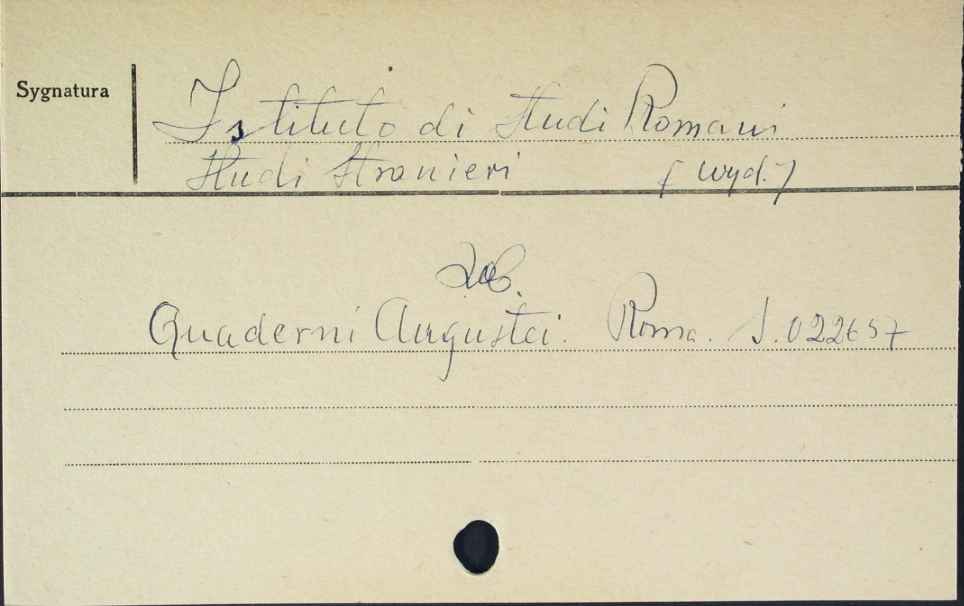 Sygnatura
Istituto di Studi Romani
Studi Stranieri (wyd.)
Zob.
Quaderni Augustei. Roma. S.022657